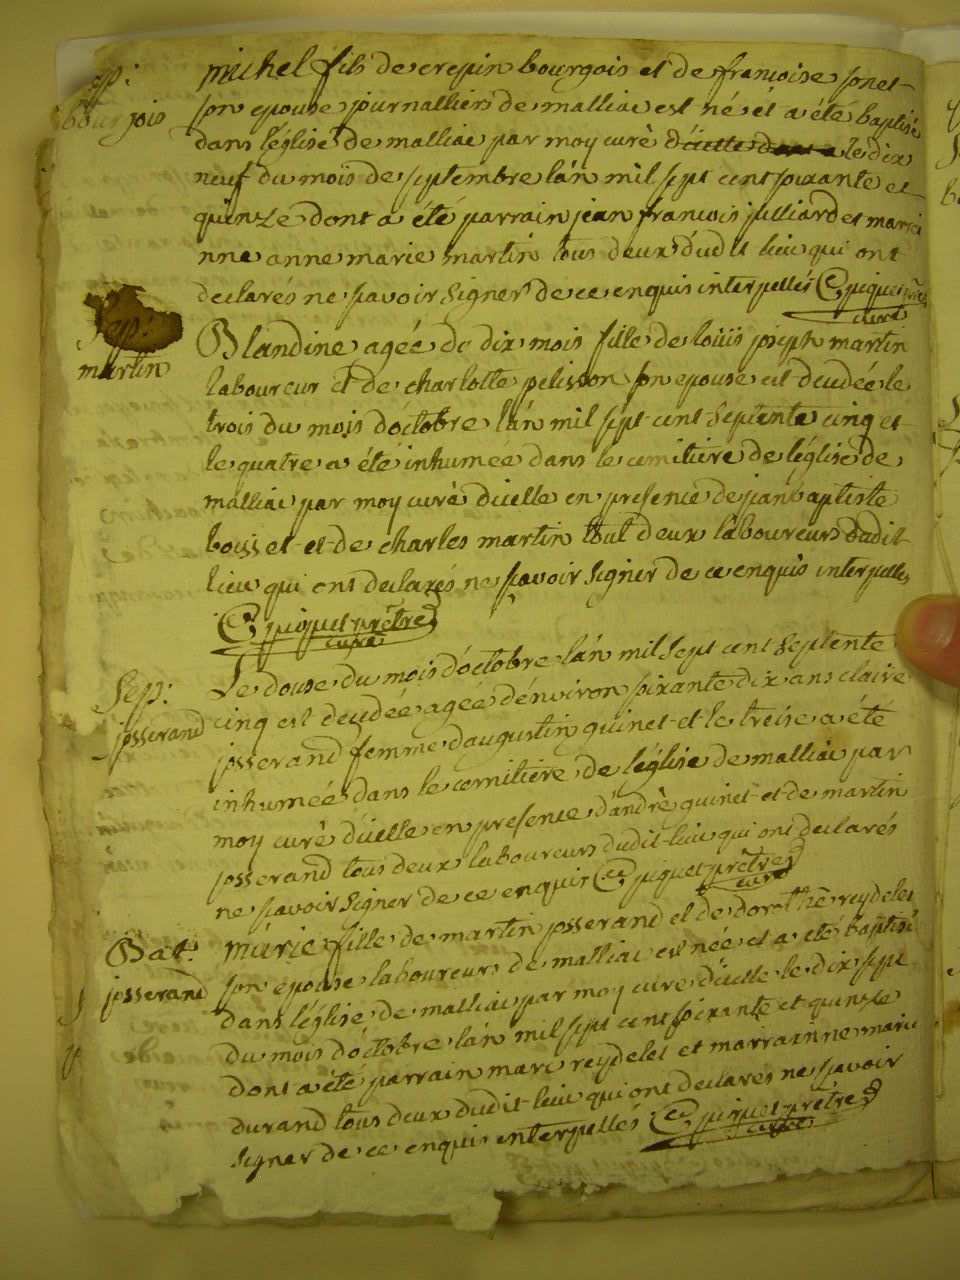 sep:
bourjois
michel fils de crepin bourgois et de francoise sonet
son epouse journalliers de malliac est né et a été baptisé
dans léglise de malliac par moy curè d'icelle le dix
neuf du mois de septembre lán mil sept cent soixante et
quinze dont a été parrain jean francois julliard et marrai
nne anne marie martin tous deux dudit lieu qui ont
declarés ne savoir signer de ce enquis interpellés C piquet prêtre
curé
sep:
martin
Blandine agée de dix mois fille de loüis joseph martin
laboureur et de charlotte pelisson son epouse est decedée le
trois du mois d'octobre lán mil sept cent septente cinq et
le quatre a été inhumée dans le cemitiere de léglise de
malliac par moy curé d'icelle en presence de jean baptiste
boisset et de charles martin tout deux laboureurs dudit
lieu qui ont declarés ne savoir signer de ce enquis interpellés
C piquet prêtre
curé
Sep:
josserand
Le douse du mois d'octobre lán mil sept cent septente
cinq est decedée agée dénviron soixante dix ans claire
josserand femme d'augustin quinet et le treise a été
inhumée dans le cemitiere de léglise de malliac par
moy curé d'icelle en presence d'andrè quinet et de martin
josserand tous deux laboureurs dudit lieu qui ont declarés
ne savoir signer de ce enquis C piquet prêtre
curé
Bat:
josserand
marie fille de martin josserand et de dorothè reydelet
son epouse laboureurs de malliac est née et a été baptisé
dans léglise de malliac par moy curé d'icelle le dix sept
du mois d'octobre lán mil sept cent soixante et quinze
dont a été parrain marc reydelet et marrainne marie
durand tous deux dudit lieu qui ont declares ne savoir
signer de ce enquis interpellés C piquet prêtre
curé